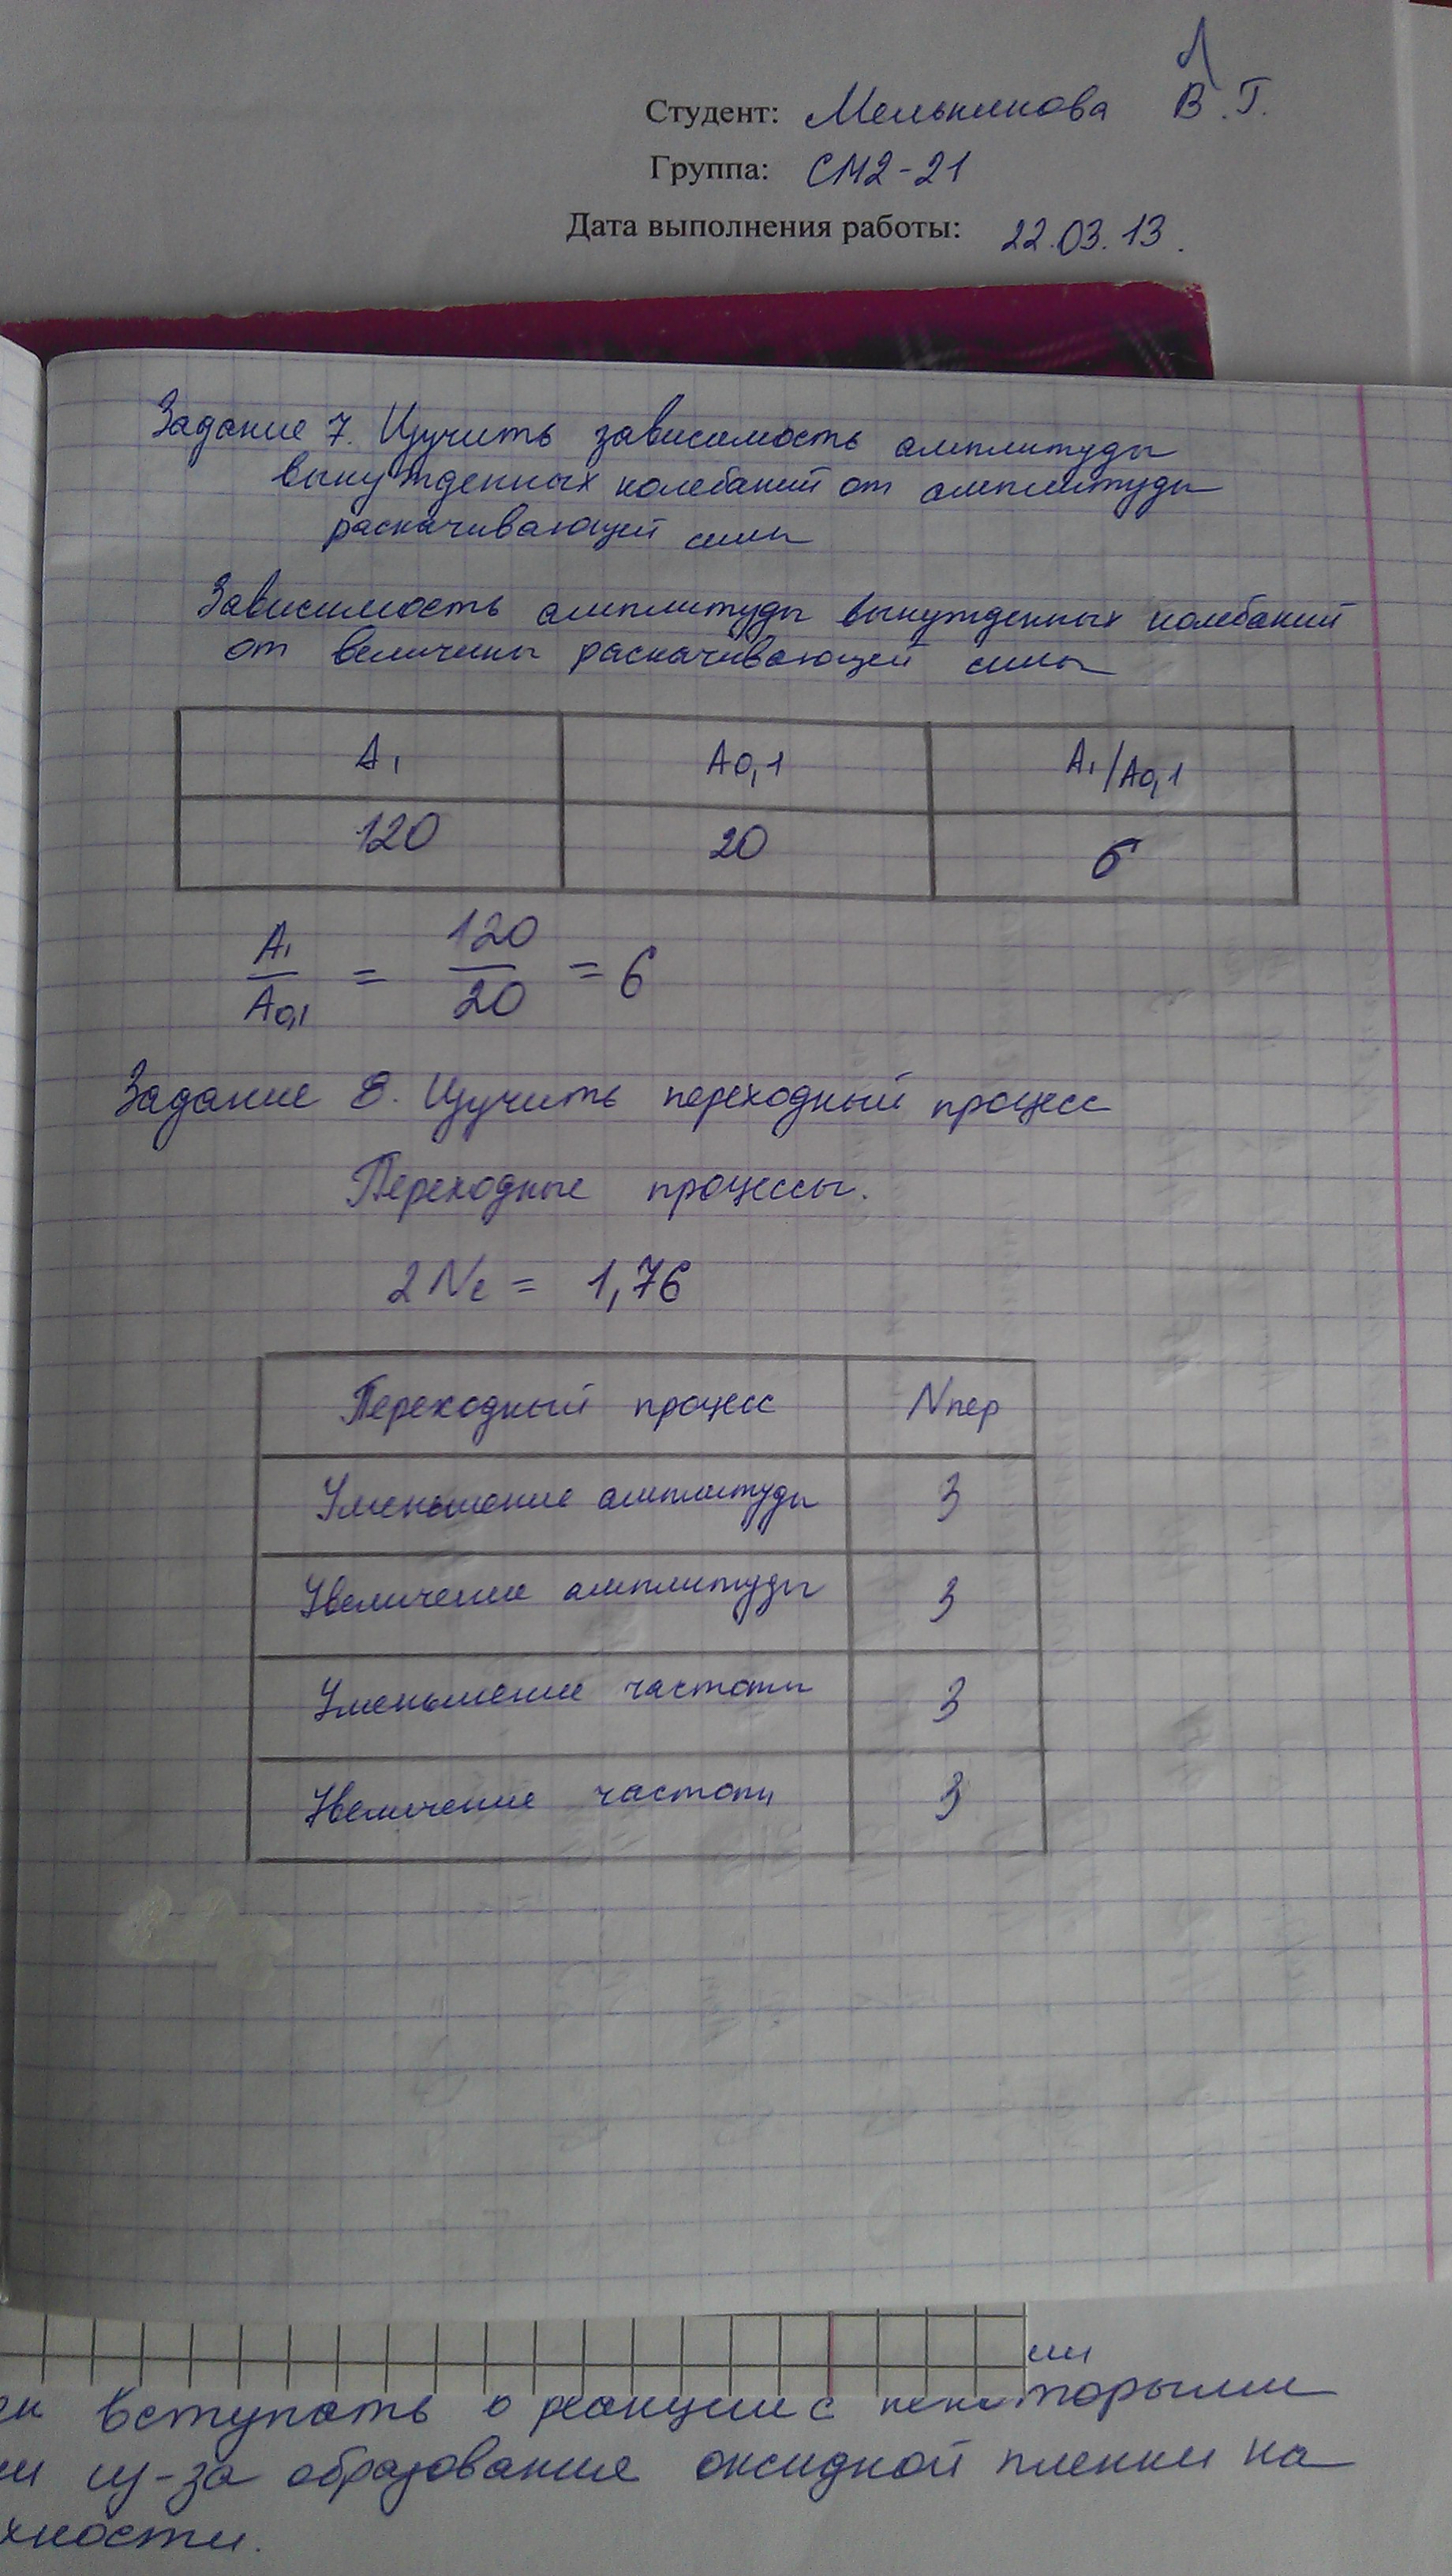 Студент: Мельникова В.Г.
Группа: СМ2-21
Дата выполнения работы: 22.03.13.
Задание 7. Изучить зависимость амплитуды
вынужденных колебаний от амплитуды
раскачивающей силы
Зависимость амплитуды вынужденных колебаний
от величины раскачивающей силы
A₁ A0,1 A₁/A0,1
120 20 6
A₁/A0,1 = 120/20 = 6
Задание 8. Изучить переходный процесс
Переходные процессы.
2Ne = 1,76
Переходный процесс Nпер
Уменьшение амплитуды 3
Увеличение амплитуды 3
Уменьшение частоты 3
Увеличение частоты 3
вступать в реакции с некоторыми
из-за образование оксидной пленки на
хности.